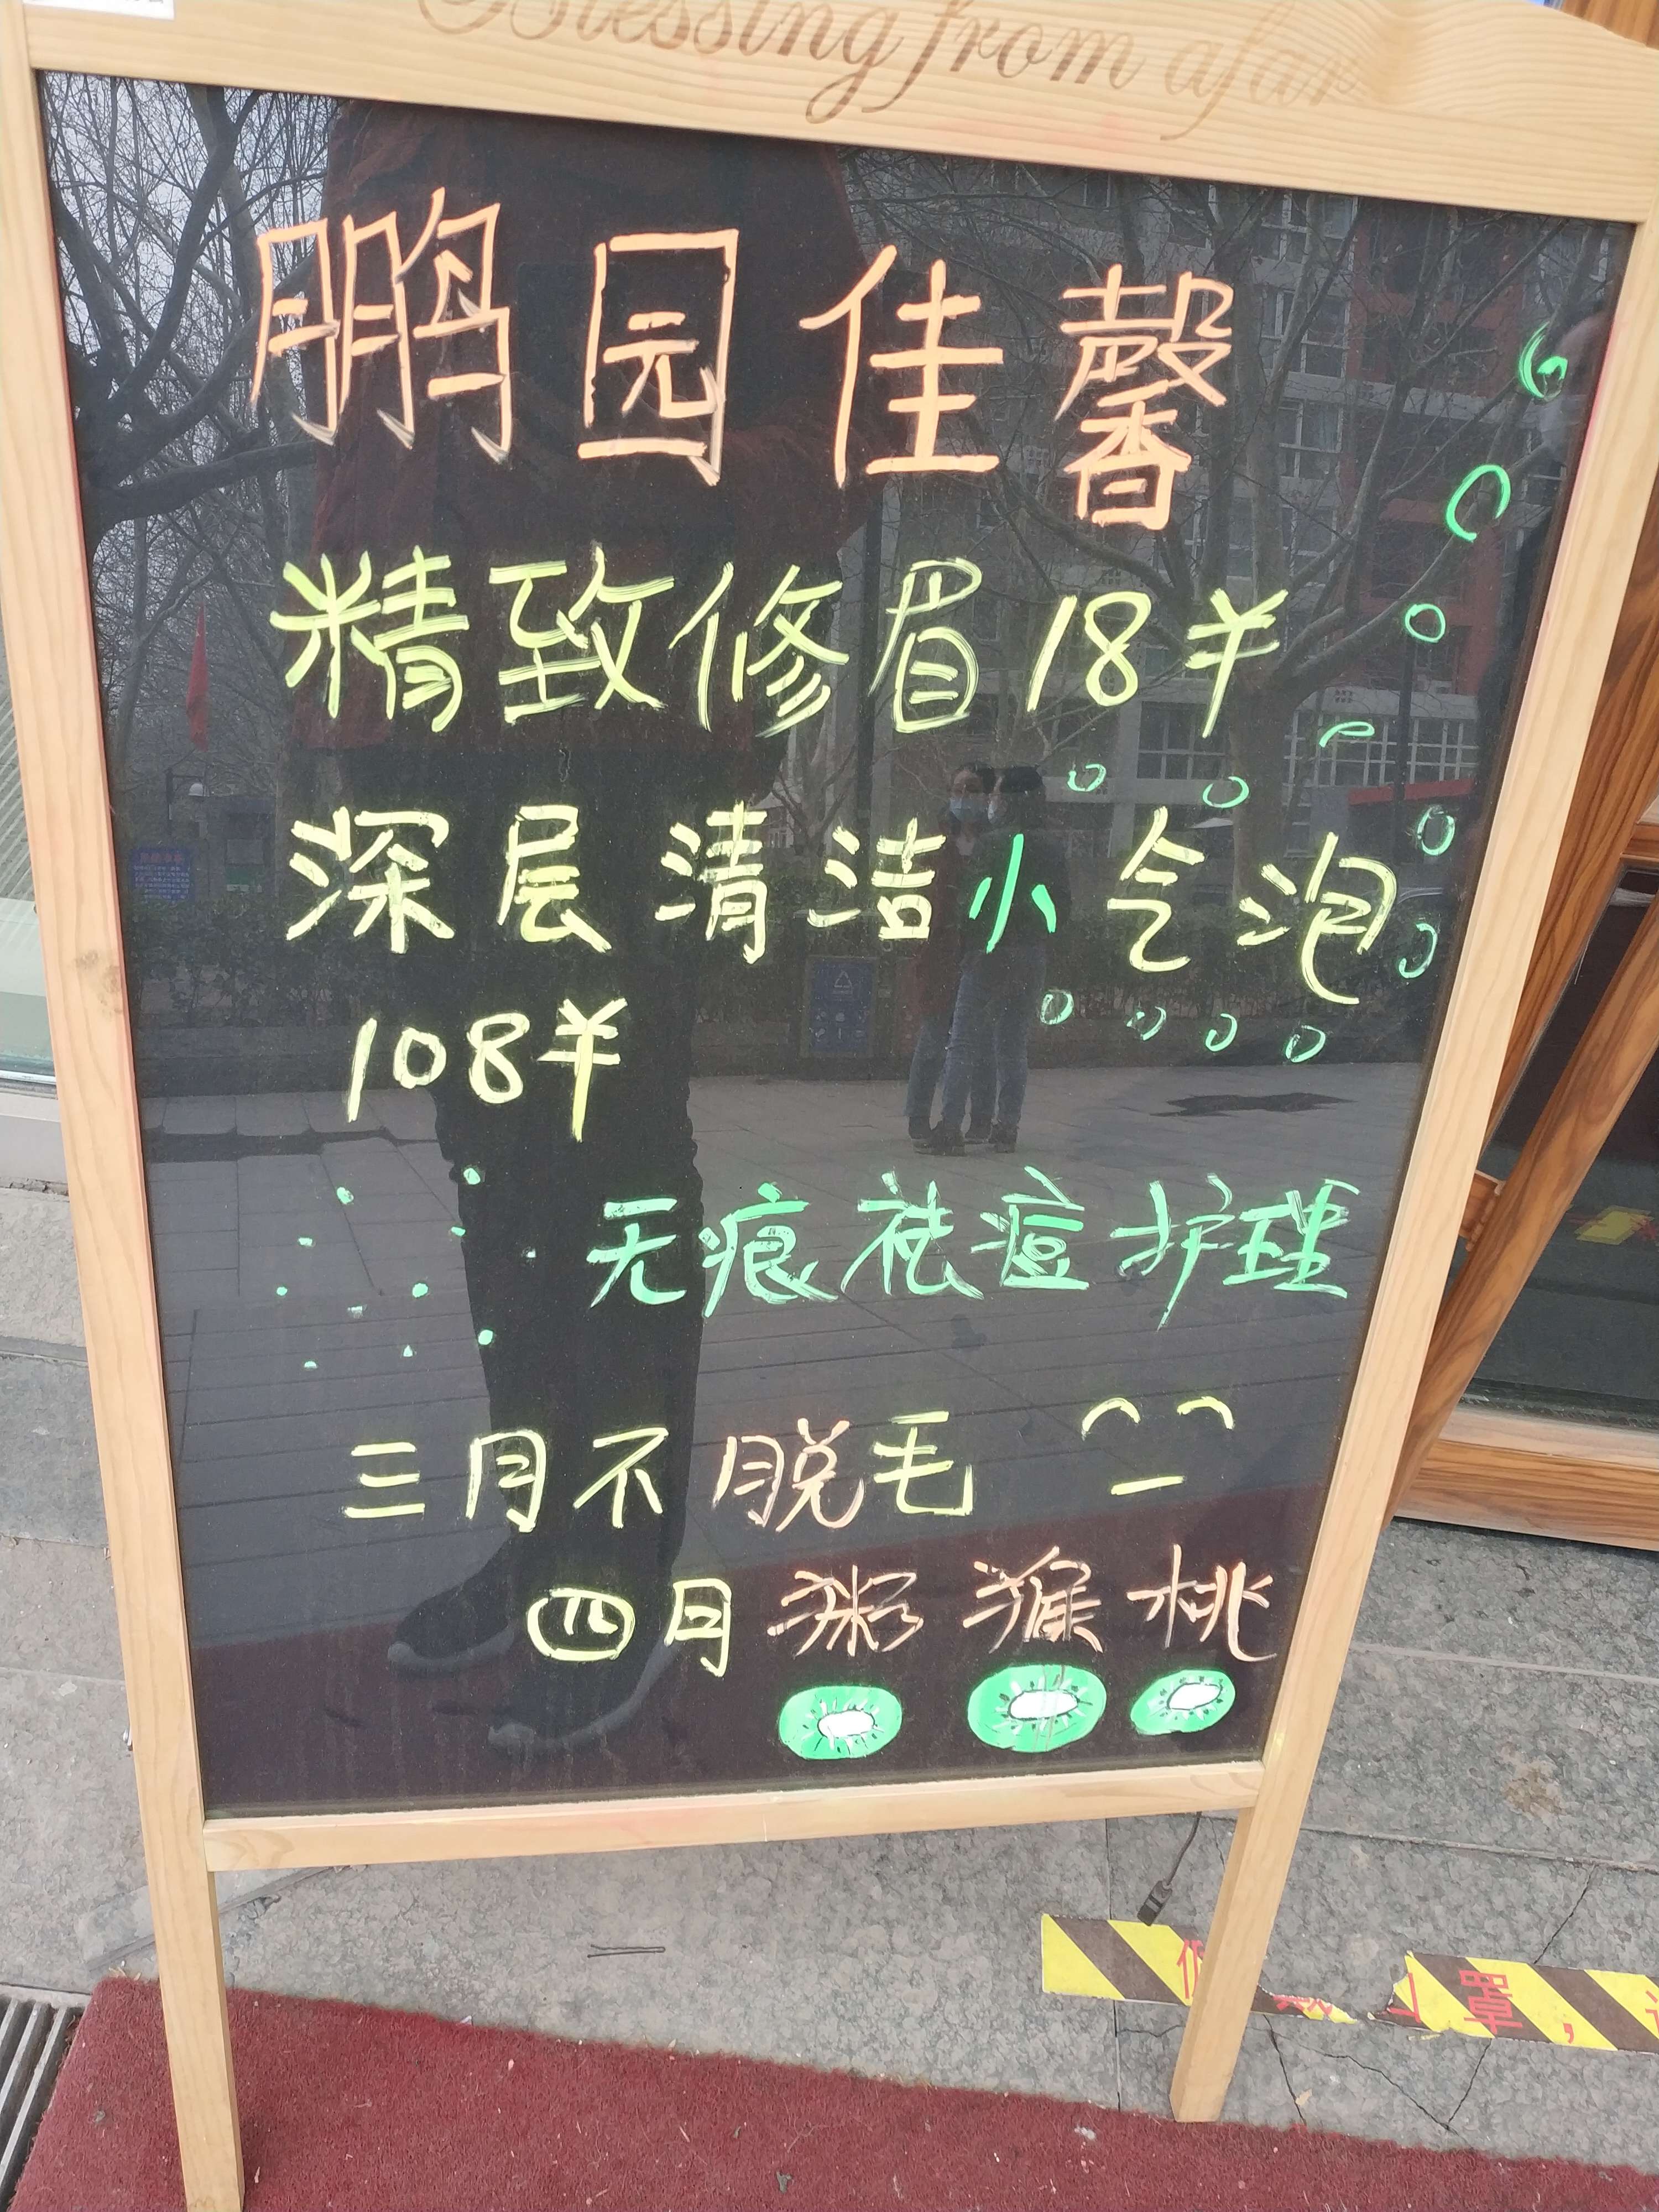 Blessing from afar
鹏园佳馨
精致修眉18¥
深层清洁小气泡
108¥
无痕祛痘护理
三月不脱毛
四月猕猴桃
罩，